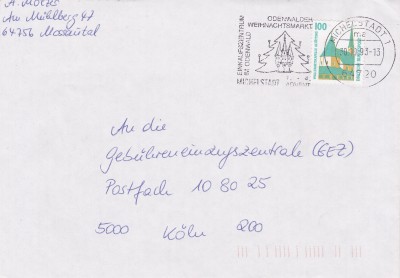 A. Moers
Am Mühlberg 47
64756 Mossautal
ODENWÄLDER
WEIHNACHTSMARKT
EINKAUFSZENTRUM
IM ODENWALD
MICHELSTADT
100
MICHELSTADT 1
ma
-13
64720
An die
Gebühreneinzugszentrale (GEZ)
Postfach 10 80 25
5000 Köln 200